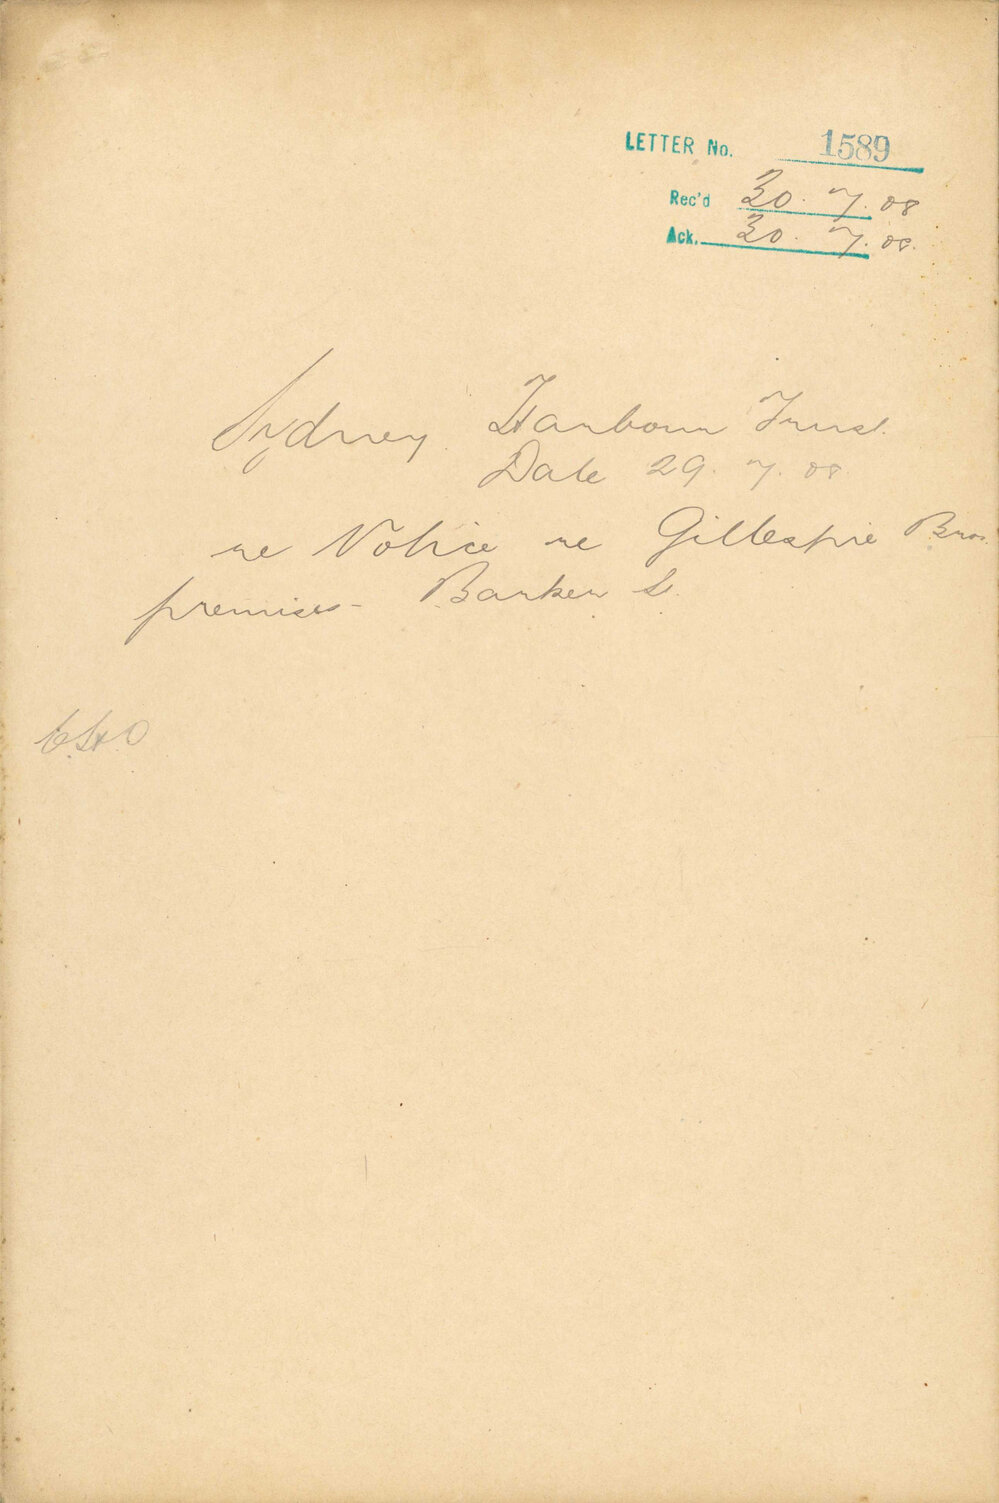 LETTER No. 1589
Rec'd 30. 7. 08
Ack. 30. 7. 08.
Sydney Harbour Trust.
Date 29. 7. 08.
re Notice re Gillespie Bros.
premises - Barker St.
C.H.O